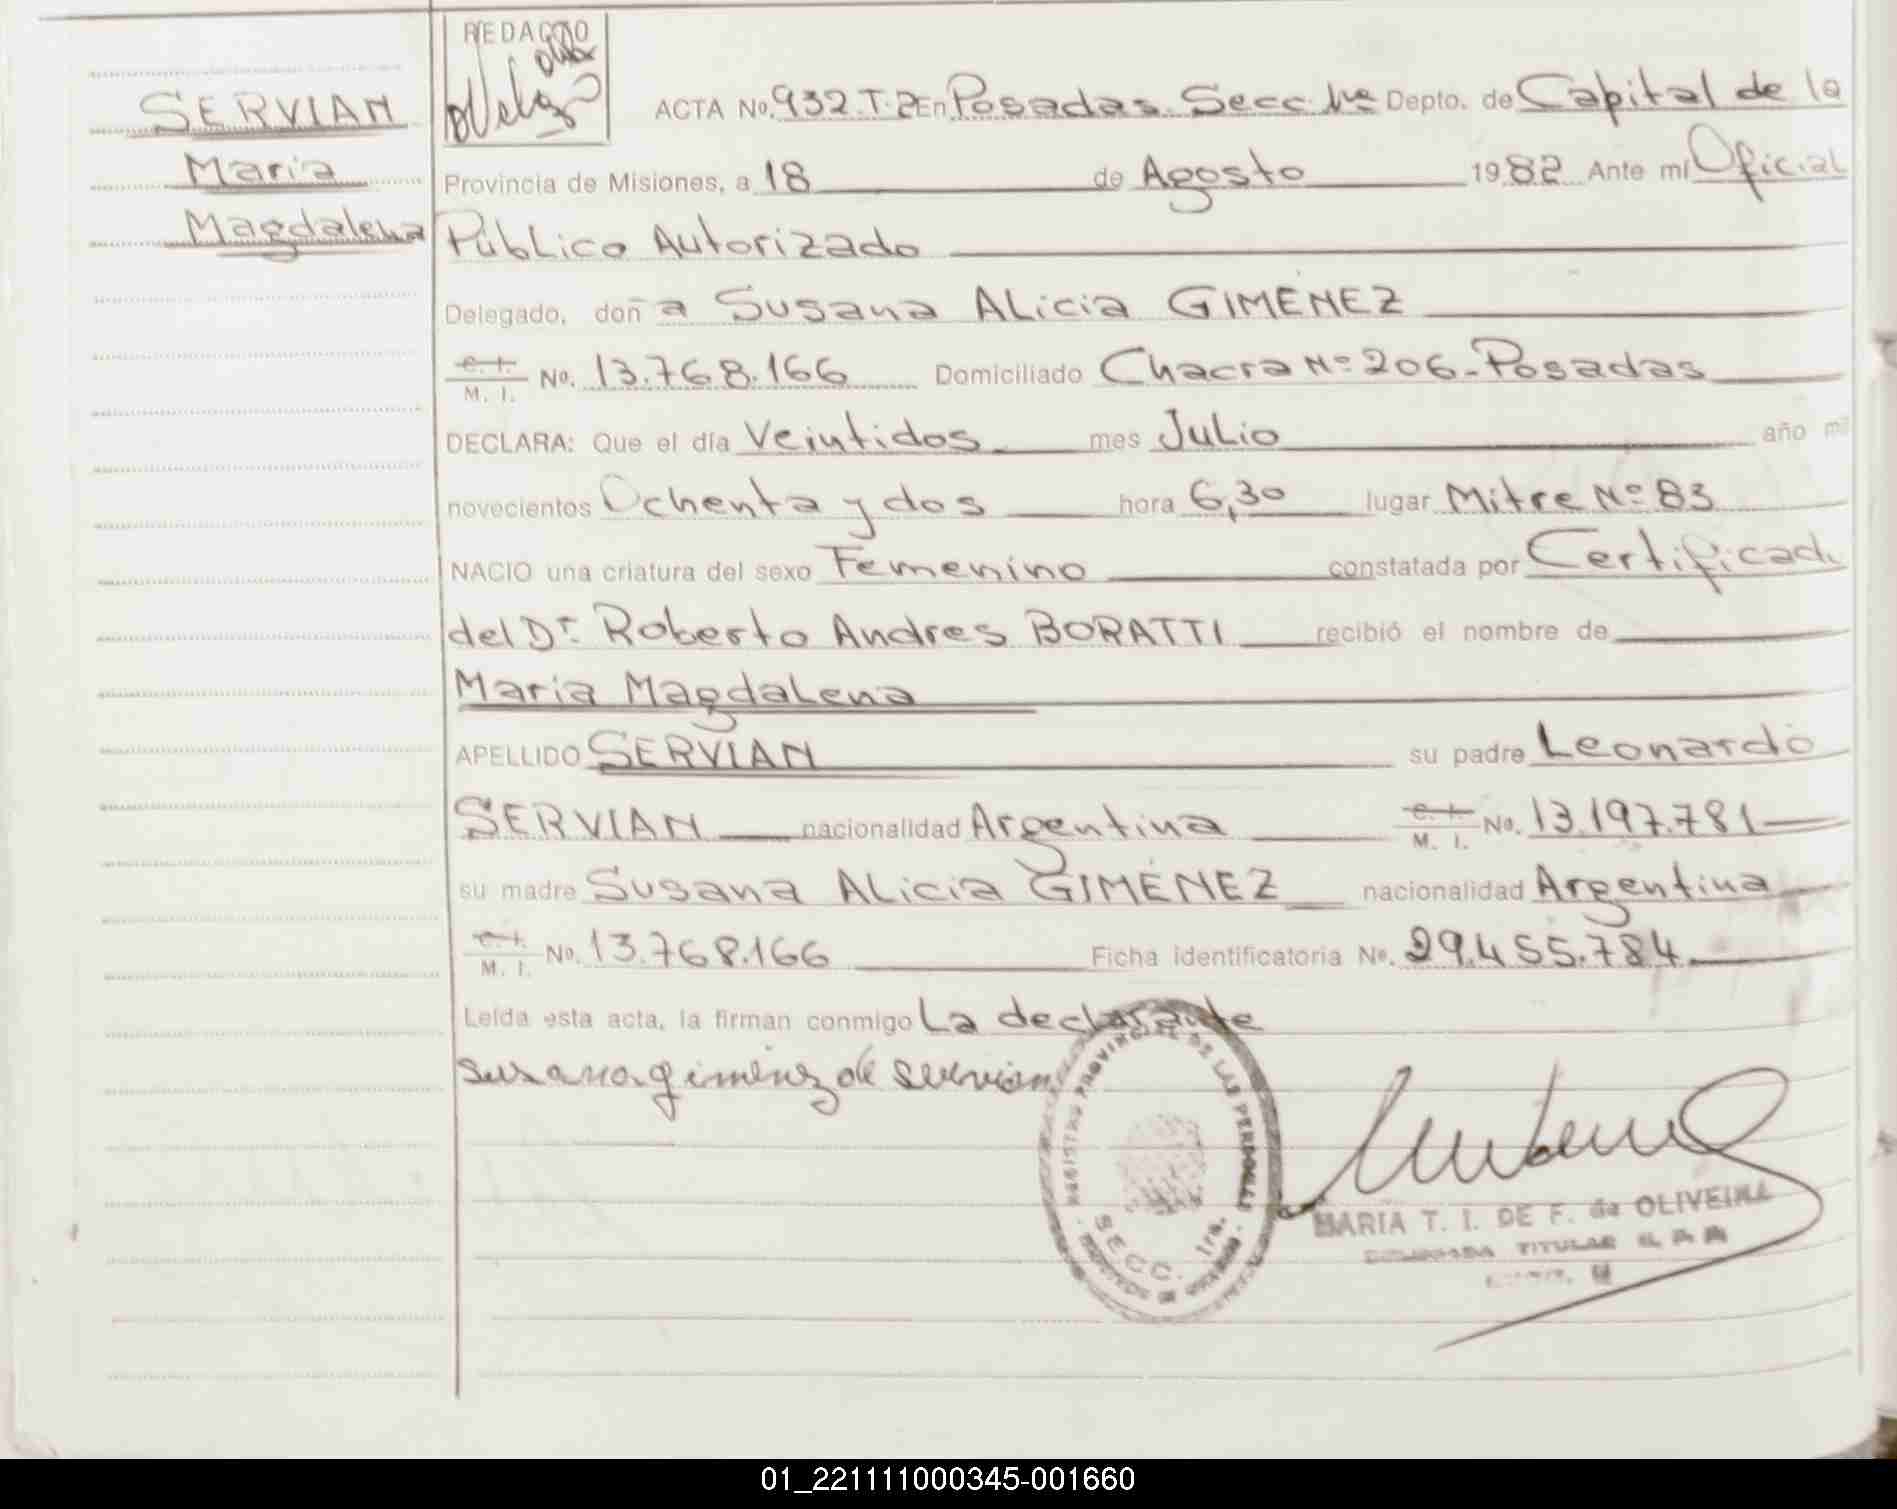 SERVIAN
Maria
Magdalena
REDACTO
ACTA No. 932.T.2 En Posadas Secc 1ra Depto. de Capital de la
Provincia de Misiones, a 18 de Agosto 1982 Ante mí Oficial
Público Autorizado
Delegado, doña Susana Alicia GIMÉNEZ
C. I. M. I. No. 13.768.166 Domiciliado Chacra Nº 206 - Posadas
DECLARA: Que el día Veintidos mes Julio año mil
novecientos Ochenta y dos hora 6,30 lugar Mitre Nº 83
NACIO una criatura del sexo Femenino constatada por Certificado
del Dr. Roberto Andres BORATTI recibió el nombre de
Maria Magdalena
APELLIDO SERVIAN su padre Leonardo
SERVIAN nacionalidad Argentina C. I. M. I. No. 13.197.781
su madre Susana Alicia GIMÉNEZ nacionalidad Argentina
C. I. M. I. No. 13.768.166 Ficha identificatoria No. 29.455.784
Leída esta acta, la firman conmigo La declarante
Susana gimenez de servian
REGISTRO PROVINCIAL DE LAS PERSONAS
SECC. 1ra.
MARIA T. I. DE F. de OLIVEIRA
TITULAR
01_221111000345-001660